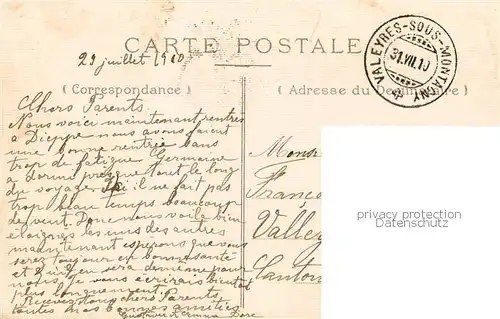 CARTE POSTALE
29 juillet 1910
VALEYRES-SOUS-MONTAGNY
31.VII.10
(Correspondance)
(Adresse du Destinataire)
Chers Parents
Nous voici maintenant rentrés
a Dieppe nous avons faient
une bonne rentrée sans
trop de fatigue Germaine
a dormi presque tout le long
du voyage Ici il ne fait pas
trop beau temps beaucoup
de vent. Donc nous voila bien
eloignés les uns des autres
maintenant esperons que vous
serez toujour en bonne santé
et qu'il en sera de meme pour
nous. Je vous écrirais bientot
plus longuement.
Recevez tous chers Parents
toutes nos bonnes amitiés
Mons
Franço
Valle
Canton
privacy protection
Datenschutz